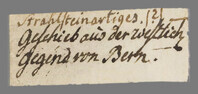 Strahlsteinartiges. [2]
Geschieb aus der westlich
gegend von Bern.